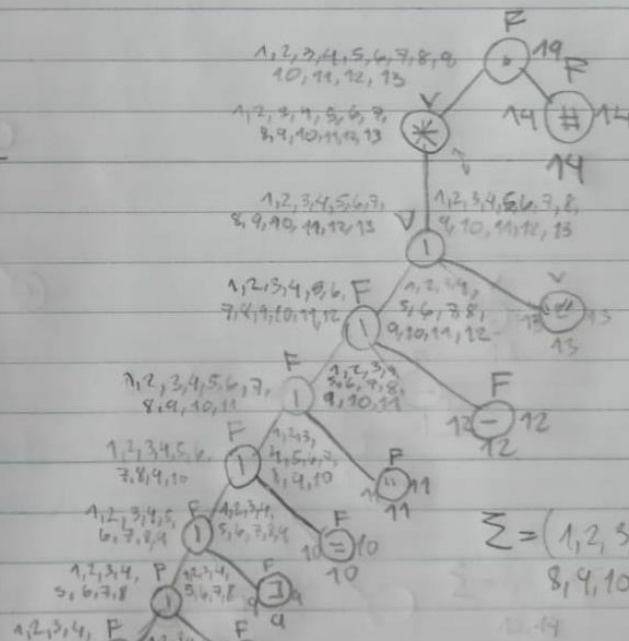 F
1, 2, 3, 4, 5, 6, 7, 8, 9
10, 11, 12, 13
• 14
F
1, 2, 3, 4, 5, 6, 7,
8, 9, 10, 11, 12, 13
V
*
14 # 14
14
1, 2, 3, 4, 5, 6, 7,
8, 9, 10, 11, 12, 13
V
|
1, 2, 3, 4, 5, 6, 7, 8,
9, 10, 11, 12, 13
1, 2, 3, 4, 5, 6,
7, 8, 9, 10, 11, 12
F
|
1, 2, 3, 4,
5, 6, 7, 8,
9, 10, 11, 12
V
13 13
13
1, 2, 3, 4, 5, 6, 7,
8, 9, 10, 11
F
|
1, 2, 3, 4,
5, 6, 7, 8,
9, 10, 11
F
12 - 12
12
1, 2, 3, 4, 5, 6,
7, 8, 9, 10
F
|
1, 2, 3,
4, 5, 6, 7,
8, 9, 10
F
11 " 11
11
1, 2, 3, 4, 5,
6, 7, 8, 9
F
|
1, 2, 3, 4,
5, 6, 7, 8, 9
F
10 = 10
10
Σ = (1, 2, 3
8, 9, 10
1, 2, 3, 4,
5, 6, 7, 8
F
|
1, 2, 3, 4,
5, 6, 7, 8
F
9 ] 9
9
1, 2, 3, 4,
F
F